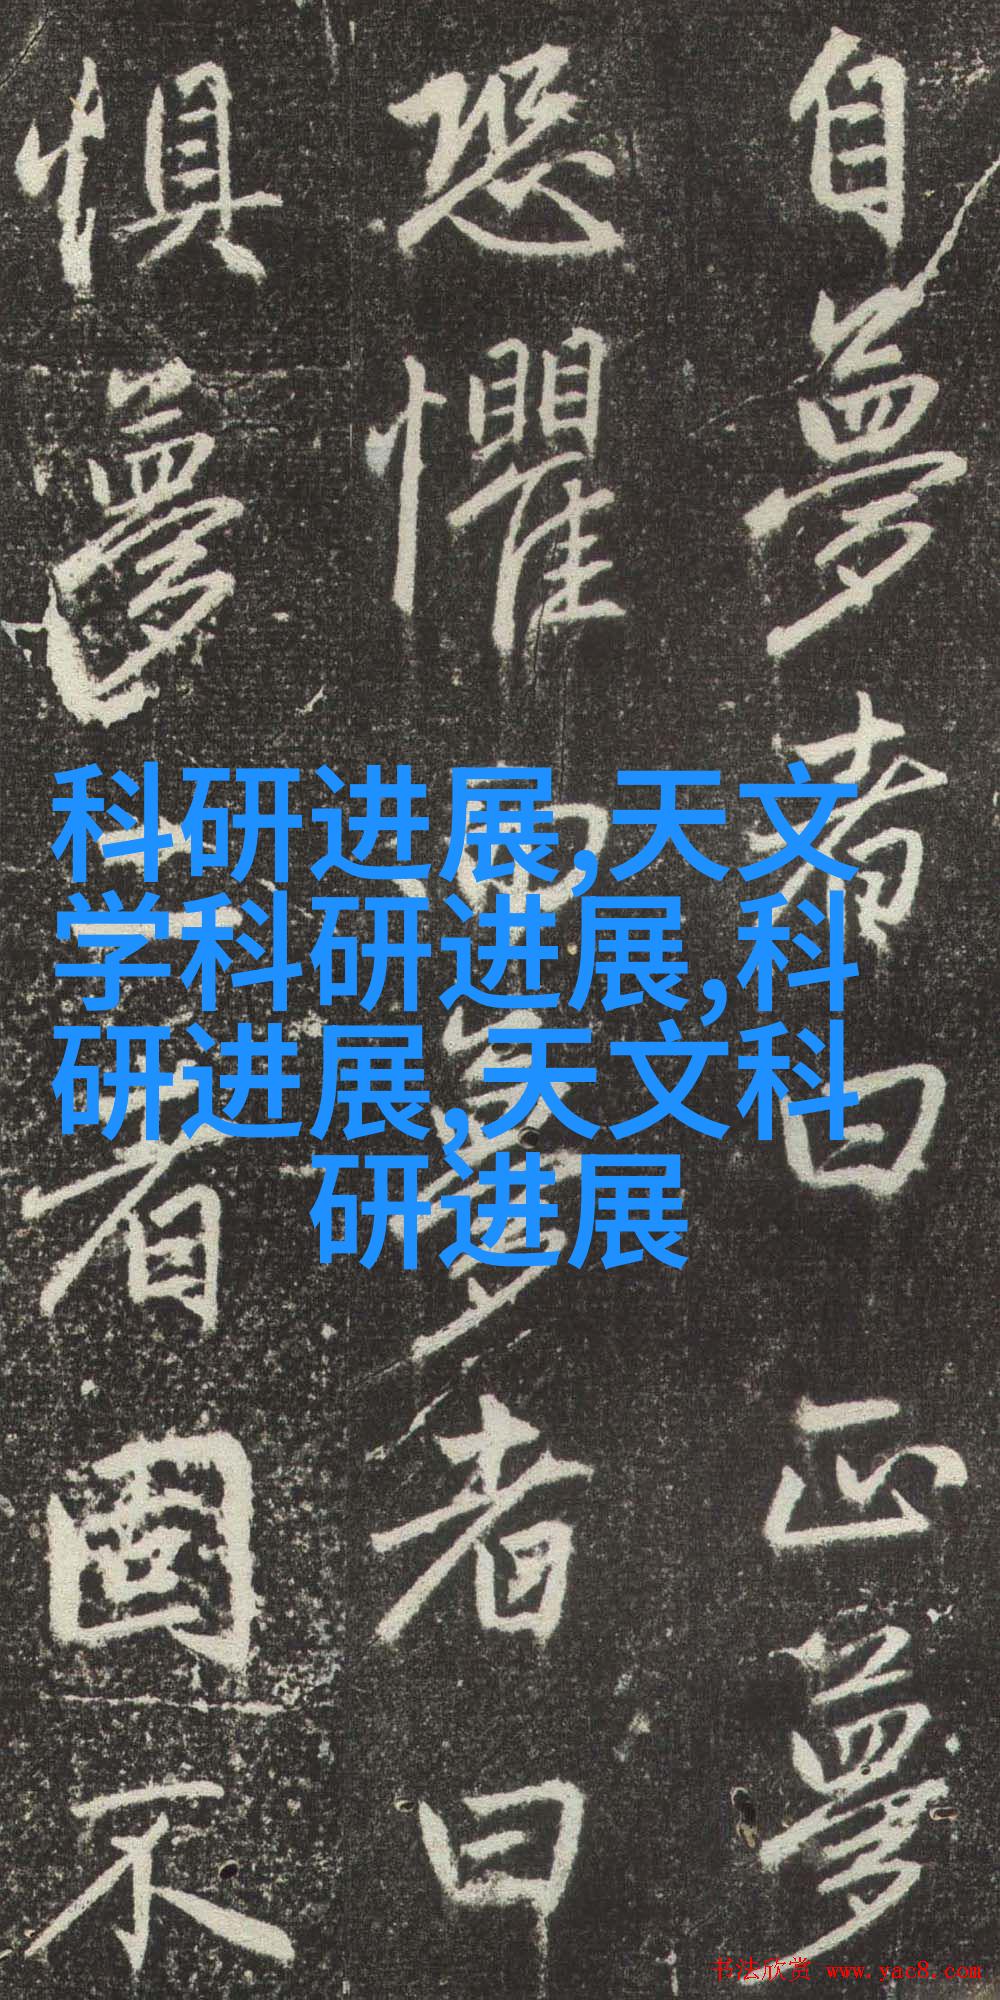 自夢者曰正夢
恐懼夢者曰
懼夢者固不
科研进展,天文
学科研进展,科
研进展,天文科
研进展
书法欣赏 www.yac8.com